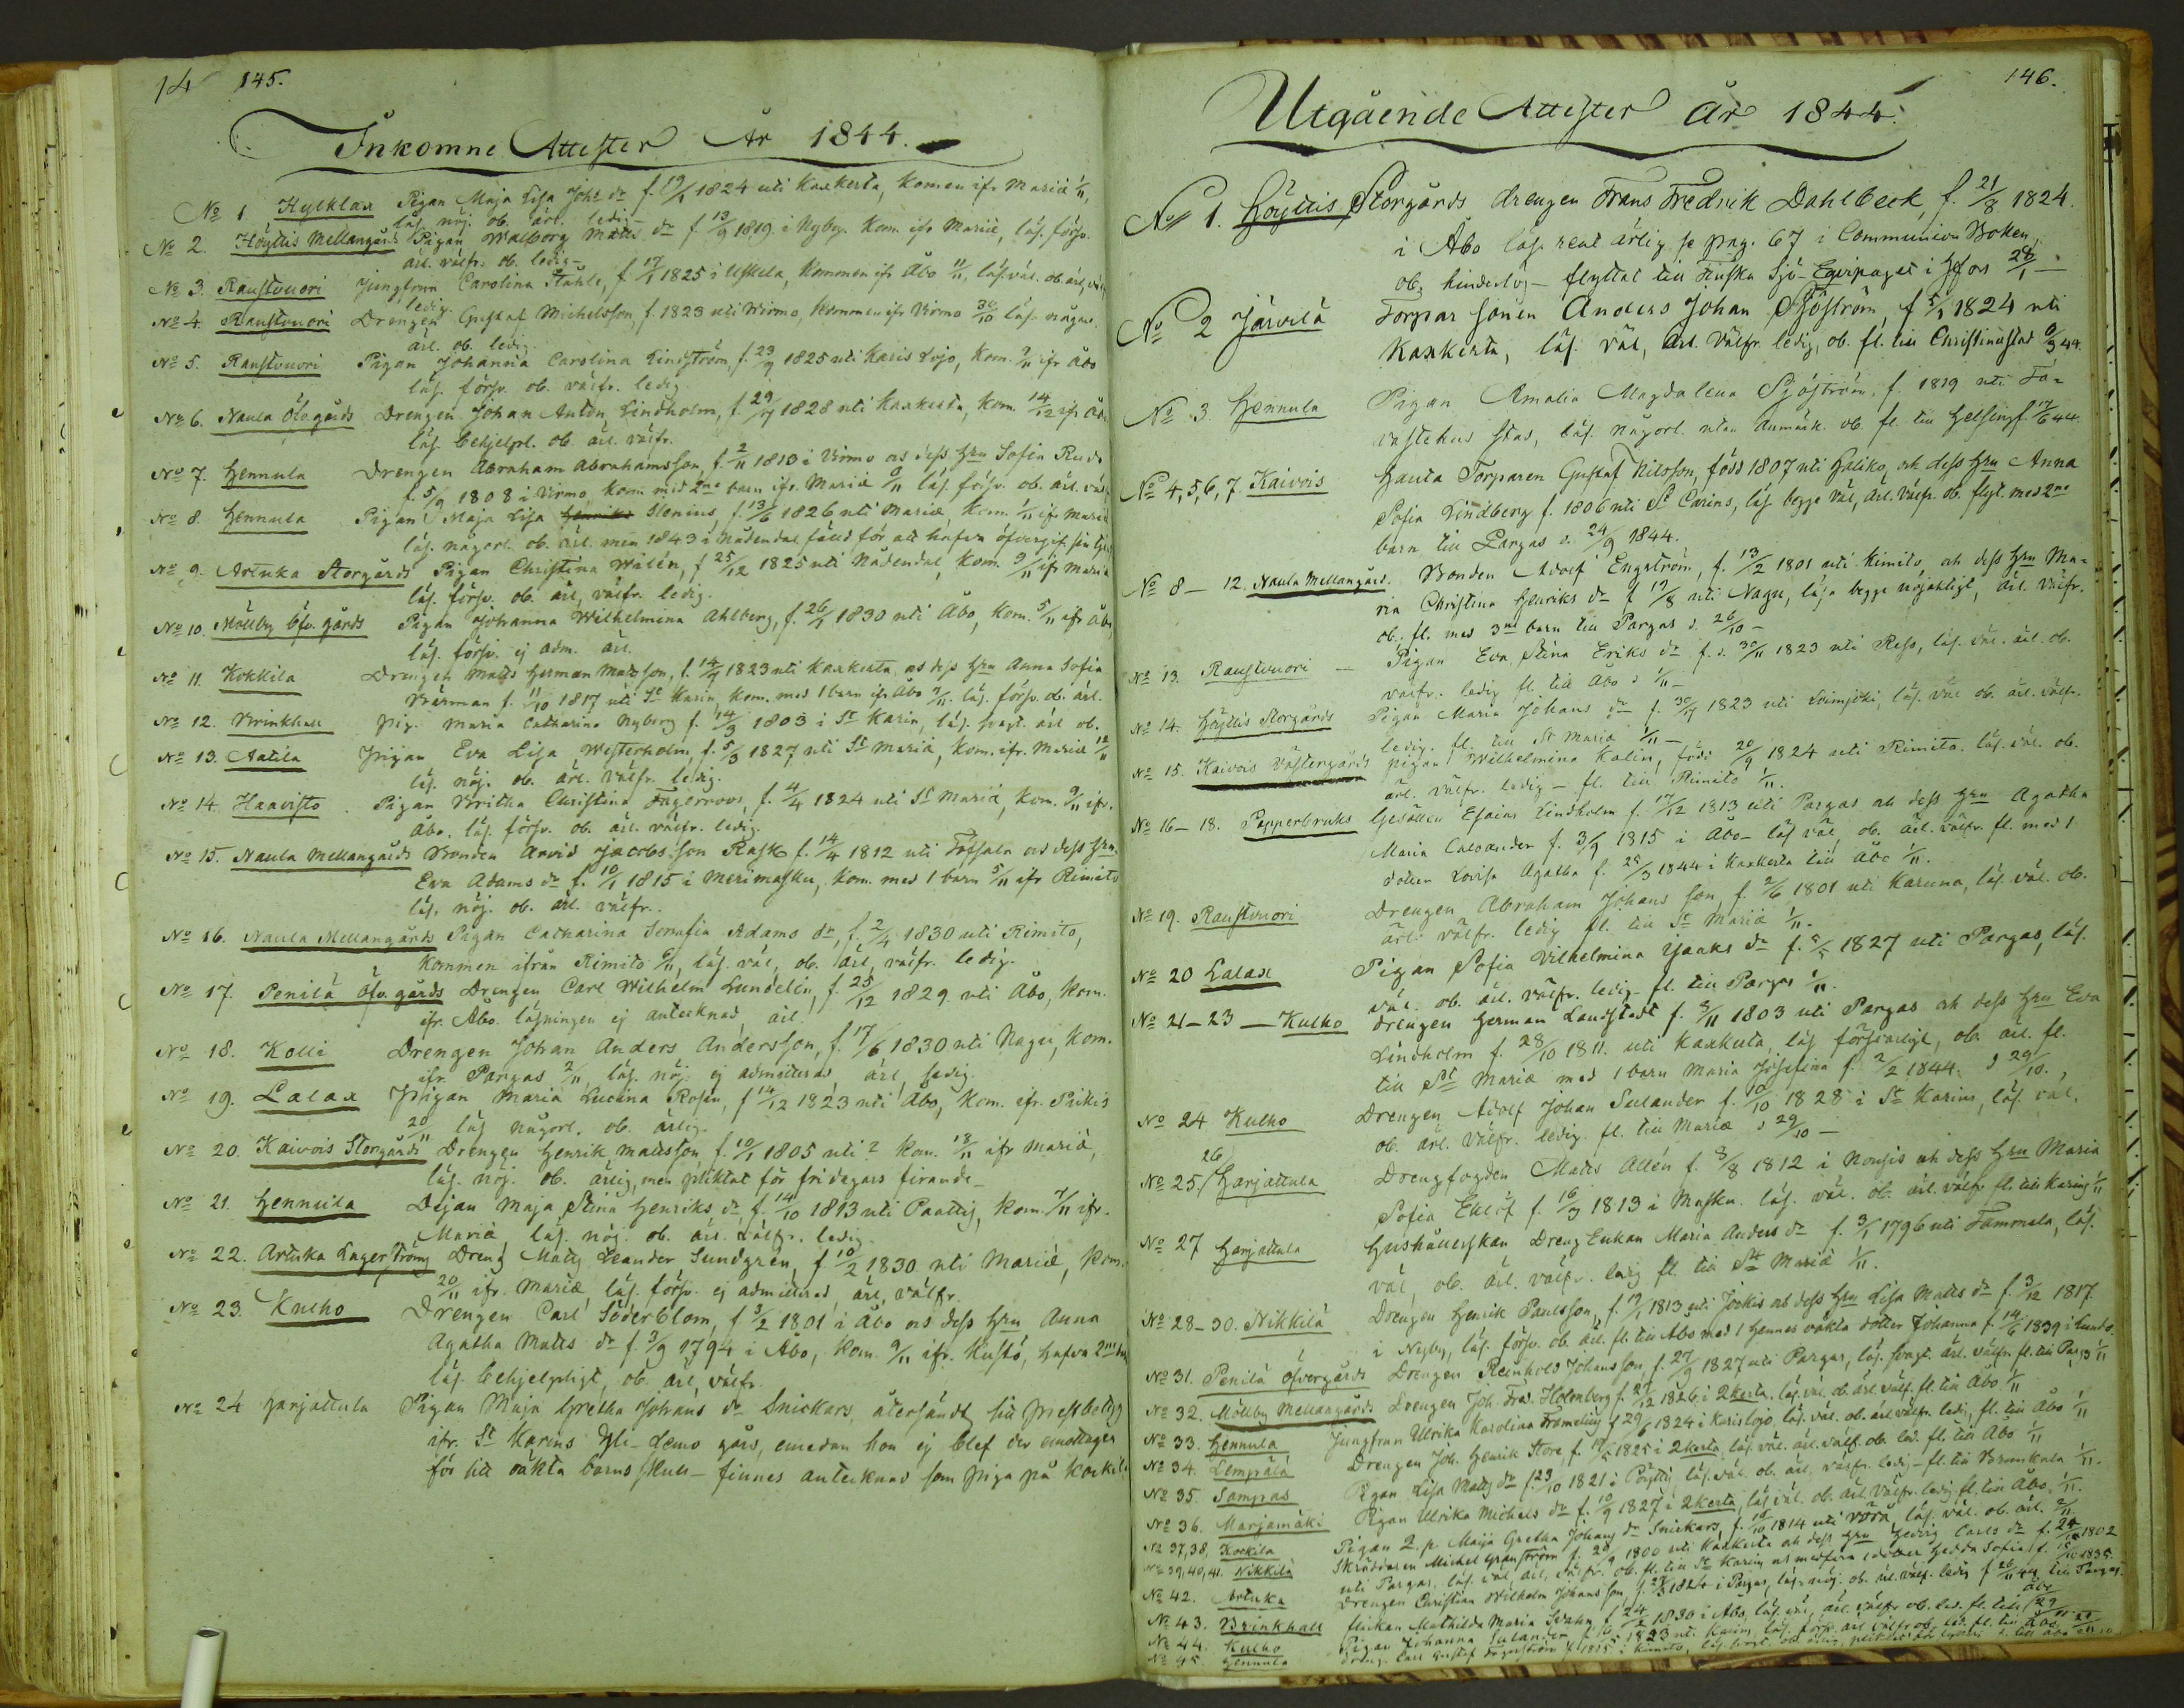 14 145.
Inkomne Attester År 1844.
No 1. Hylklax Pigan Maja Lisa Johs dr f. 19/1 1824 uti Kaxkerta, kommen ifr Mariæ 1/11,
läs. nöj. ob. ärl. ledig.
No 2. Höyttis Mellangårds Pigan Walborg Matts dr f 13/9 1819 i Nyby. Kom ifr Mariæ, läs. försv.
ärl. välfr. ob. ledig -
No 3. Raustvuori Jungfrun Carolina Ståhle, f 17/1 1825 i Uskela, kommen ifr Åbo 11/11, läs. väl. ob. ärl.
ledig.
No 4. Raustvuori Drengen Gustaf Michelsson, f. 1823 uti Virmo, kommen ifr Virmo 30/10 läs. någorl.
ärl. ob. ledig.
No 5. Raustvuori Pigan Johanna Carolina Lindström, f. 29/9 1825 uti Karis Lojo, kom. 9/11 ifr Åbo
läs. försv. ob. välfr. ledig.
No 6. Naula Öfv. gårds Drengen Johan Anton Lindholm, f. 29/7 1828 uti Kaxkerta, kom. 14/12 ifr Åbo
läs. behjelpl. ob. ärl. välfr.
No 7. Hennula Drengen Abraham Abrahamsson, f. 2/11 1813 i Virmo och dess Hru Sofia
f. 5/9 1808 i Virmo, kom med 2ne barn ifr. Mariæ 9/11 läs. försv. ob. ärl.
No 8. Hennula Pigan Maja Lisa Henriks Slenius, f. 13/6 1826 uti Mariæ kom. 1/11 ifr Mariæ
läs. någorl. ob. ärl. men 1843 i Nådendal fäld för att hafva öfvergif. sin
No 9. Artuka Storgårds Pigan Christina Walén, f 25/12 1825 uti Nådendal, kom. 9/11 ifr Mariæ
läs. försv. ob. ärl, välfr. ledig.
No 10. Möllby Öfv. gårds Pigan Johanna Wilhelmina Ahlberg, f. 26/1 1830 uti Åbo, kom. 5/11 ifr Åbo
läs. försv. ej adm. ärl.
No 11. Kokkila Drengen Matts Herman Matsson, f. 14/7 1823 uti Kaxkerta och dess Hru Anna Sofia
Wärman f. 11/10 1817 uti St Karin, kom. med 1 barn ifr Åbo 9/11. läs. försv. ob. ärl.
No 12. Brinkhall Pig. Maria Catharina Nyberg f. 14/3 1803 i St Karin, läs. svagt. ärl ob.
No 13. Aatila Pigan Eva Lisa Westerholm, f. 5/3 1827 uti St Mariæ, kom. ifr. Mariæ 12/11
läs. nöj. ob. ärl. välfr. ledig.
No 14. Haavisto Pigan Britha Christina Fagerroos, f. 4/4 1824 uti St Mariæ, kom. 9/11 ifr.
Åbo. läs. försv. ob. ärl. välfr. ledig.
No 15. Naula Mellangårds Bonden Arvid Jacobsson Rask f. 14/4 1812 uti och dess Hru
Eva Adams dr f. 10/1 1815 i Merimasku, kom. med 1 barn 5/11 ifr Rimito
läs. nöj. ob. ärl. välfr.
No 16. Naula Mellangårds Pigan Catharina Serafia Adams dr, f. 2/4 1830 uti Rimito,
kommen ifrån Rimito 9/11, läs. väl, ob. ärl, välfr. ledig.
No 17. Penilä Öfv. gårds Drengen Carl Wilhelm Lundelin, f. 25/12 1829 uti Åbo, kom.
ifr. Åbo. läsningen ej antecknad ärl.
No 18. Kolli Drengen Johan Anders Andersson, f. 17/6 1830 uti Nagu, kom.
ifr. Pargas 2/11, läs. nöj. ej admitterad ärl, ledig.
No 19. Lalax Pigan Maria Lucina Rosin, f 14/12 1823 uti Åbo, kom. ifr. Pikis
20/11 läs någorl. ob. ärlig.
No 20. Kaivois Storgårds Drengen Henrik Mattsson, f. 10/1 1805 uti? kom. 18/11 ifr Mariæ,
läs. nöj. ob. ärlig, men pliktat för fridagars firande -
No 21. Hennula Pigan Maja Stina Henriks dr, f. 14/10 1813 uti Paattis, kom. 7/11 ifr.
Mariæ, läs. nöj. ob. ärl. välfr. ledig.
No 22. Artuka Lagerströms Dreng Matts Leander Sundgrén, f 10/2 1830 uti Mariæ, kom.
20/11 ifr. Mariæ, läs. försv. ej admitterad, ärl, välfr.
No 23. Kulho Drengen Carl Söderblom, f 3/2 1801 i Åbo och dess Hru Anna
Agatha Matts dr f. 3/9 1794 i Åbo, kom. 9/11 ifr. Kustö, hafva 2ne barn
läs. behjelpligt, ob. ärl, välfr.
No 24 Harjattula Pigan Maja Gretha Johans dr Snickars, återsändt sitt prestbetyg
ifr. St Karins Yli-Lemo gård, emedan hon ej blef der emottagen
för sitt oäkta barns skull - finnes antecknad som piga på Kockila
146.
Utgående Attester år 1844.
No 1. Höyttis Storgårds drengen Frans Fredrik Dahlbeck, f. 21/8 1824.
i Åbo läs. rent ärlig se pag. 67 i Communion Boken,
ob. hinderlös - flyttat till Finska Sjö-Equipaget i Hfors 28/1 -
No 2 Järvilä Torpar sonen Anders Johan Sjöström, f 5/1 1824 uti
Kaxkerta, läs. väl, ärl. välfr. ledig, ob. fl. till Christinestad 6/3 44.
No 3. Hennula Pigan Amalia Magdalena Sjöström, f. 1819 uti Ta-
vastehus stad, läs. någorl. utan anmärk. ob. fl. till Helsingf. 17/6 44.
No 4, 5, 6, 7. Kaivois Hauta Torparen Gustaf Nilsson, född 1807 uti Haliko, och dess Hru Anna
Sofia Lindberg f. 1806 uti St Carins, läs. begge väl, ärl. välfr. ob. flyt. med 2ne
barn till Pargas d. 24/9 1844.
No 8 - 12. Naula Mellangård. Bonden Adolf Engström, f. 13/2 1801 uti Kimito, och dess Hru Ma-
ria Christina Henriks dr f 19/8 uti Nagu, läsa begge nöjaktigt, ärl. välfr.
ob. fl. med 3ne barn till Pargas d. 26/10 -
No 13. Raustvuori - Pigan Eva Stina Eriks dr f. d. 30/11 1823 uti Reso, läs. väl. ärl. ob.
välfr. ledig fl. till Åbo d 1/11 -
No 14. Höyttis Storgårds Pigan Maria Johans dr f. 30/7 1823 uti Loimjoki, läs. väl ob. ärl. välfr.
ledig. fl. till St Mariæ 1/11 -
No 15. Kaivois Västergårds Pigan Wilhelmina Kalin, född 20/9 1824 uti Rimito. läs. väl. ob.
ärl. välfr. ledig - fl. till Rimito 1/11.
No 16 - 18. Papperbruks Gesällen Esaias Lindholm f. 17/12 1813 uti Pargas och dess Hru Agatha
Maria f. 3/9 1815 i Åbo - läs väl, ob. ärl. välfr. fl. med 1
dotter Lovisa Agatha f. 25/3 1844 i Kaxkerta till Åbo 1/11.
No 19. Raustvuori Drengen Abraham Johans son, f. 2/6 1801 uti Karuna, läs. väl. ob.
ärl. välfr. ledig fl. till St Mariæ 1/11.
No 20 Lalax Pigan Sofia Vilhelmina Isaaks dr f. 1827 uti Pargas, läs.
väl. ob. ärl. välfr. ledig - fl. till Pargas 1/11.
No 21 - 23 - Kulho drengen Herman Landstedt f. 3/11 1803 uti Pargas och dess Hru Eva
Lindholm f. 28/10 1811. uti Kaxkerta, läs försvarligt, ob. ärl. fl.
till St Mariæ med 1 barn Maria Josefina f. 2/2 1844. d 29/10.
No 24 Kulho Drengen Adolf Johan Sulander f. 10/10 1828 i St Karins, läs. väl.
ob. ärl. välfr. ledig. fl. till Mariæ d 29/10 -
No 25, 26 Harjattula Drengfogden Matts Allén f. 8/8 1812 i Nousis och dess Hru Maria
Sofia Eklöf f. 16/3 1813 i Masku. läs. väl. ob. ärl. välfr fl. till Karins 1/11
No 27 Harjattula Hushållerskan Dreng Enkan Maria Anders dr f. 3/1 1796 uti Tammela, läs.
väl, ob. ärl. välfr. ledig fl. till St Mariæ 1/11.
No 28 - 30. Nikkilä Drengen Henrik Paulsson, f. 19/1 1813 uti Jockis och dess Hru Lisa Matts dr f. 3/12 1817.
i Nyby, läs. försv. ob. ärl. fl. till Åbo med 1 hennes oäkta dotter Johanna f. 14/6 1839 i Lundo.
No 31. Penilä Öfvergårds Drengen Reinhold Johansson f. 27/9 1827 uti Pargas, läs. svagt. ärl. välfr. fl. till Pargs 1/11
No 32. Möllby Mellangårds Drengen Joh. Fred. Holmberg f. 27/12 1826 i 2kerta. läs. väl. ob. ärl. välf. fl. till Åbo 1/11
No 33. Hennula Jungfrun Ulrika Karolina f 29/6 1824 i Karislojo, läs. väl. ob. ärl välfr. ledig, fl. till Åbo 1/11
No 34. Lempälä Drengen Joh. Henrik Store, f. 1825 i 2kerta, läs. väl. ärl. välf. ob. led. fl. till Åbo 1/11
No 35. Sampas Pigan Lisa Matts dr f. 23/10 1821 i Pöyttis läs. väl. ob. ärl, välfr. ledig - fl. till 1/11.
No 36. Marjamäki Pigan Ulrika Michels dr f. 10/9 1827 i 2kerta, läs väl. ob. ärl. välfr. ledig fl. till Åbo. 1/11.
No 37, 38, Kockila Pigan Q. p. Maija Gretha Johans dr Snickars, f. 18/10 1814 uti Vörå, läs. väl. ob. ärl. 2/11
No 39, 40, 41. Nikkilä Skräddaren Michel Granström f. 20/9 1800 uti Kaxkerta och dess Hru Hedvig Carls dr f. 24/10 1802
uti Pargas, läs. väl, ärl, välfr. ob. fl. till St Karin och medföra dotter Hedda Sofia f. 15/10 1835.
No 42. Artuka Drengen Christian Wilhelm Johansson f. 1824 i Pargas, läs. nöj. ob. ärl. välfr. ledig f 26/11 44 till Pargas.
No 43. Brinkhall flickan Mathilda Maria f 24/2 1830 i Åbo, läs. väl, ärl. välfr ob. led. fl. till Åbo 29/11
No 44. Kulho Pigan Johanna Sulander 1823 uti Karins, läs. försv. ärl. välfr. ob. led. fl. till Åbo
No 45. Hennula Dreng. Carl Gustaf Fagerström f 1815 i Kimito, läs. svagt. ob. ärlig